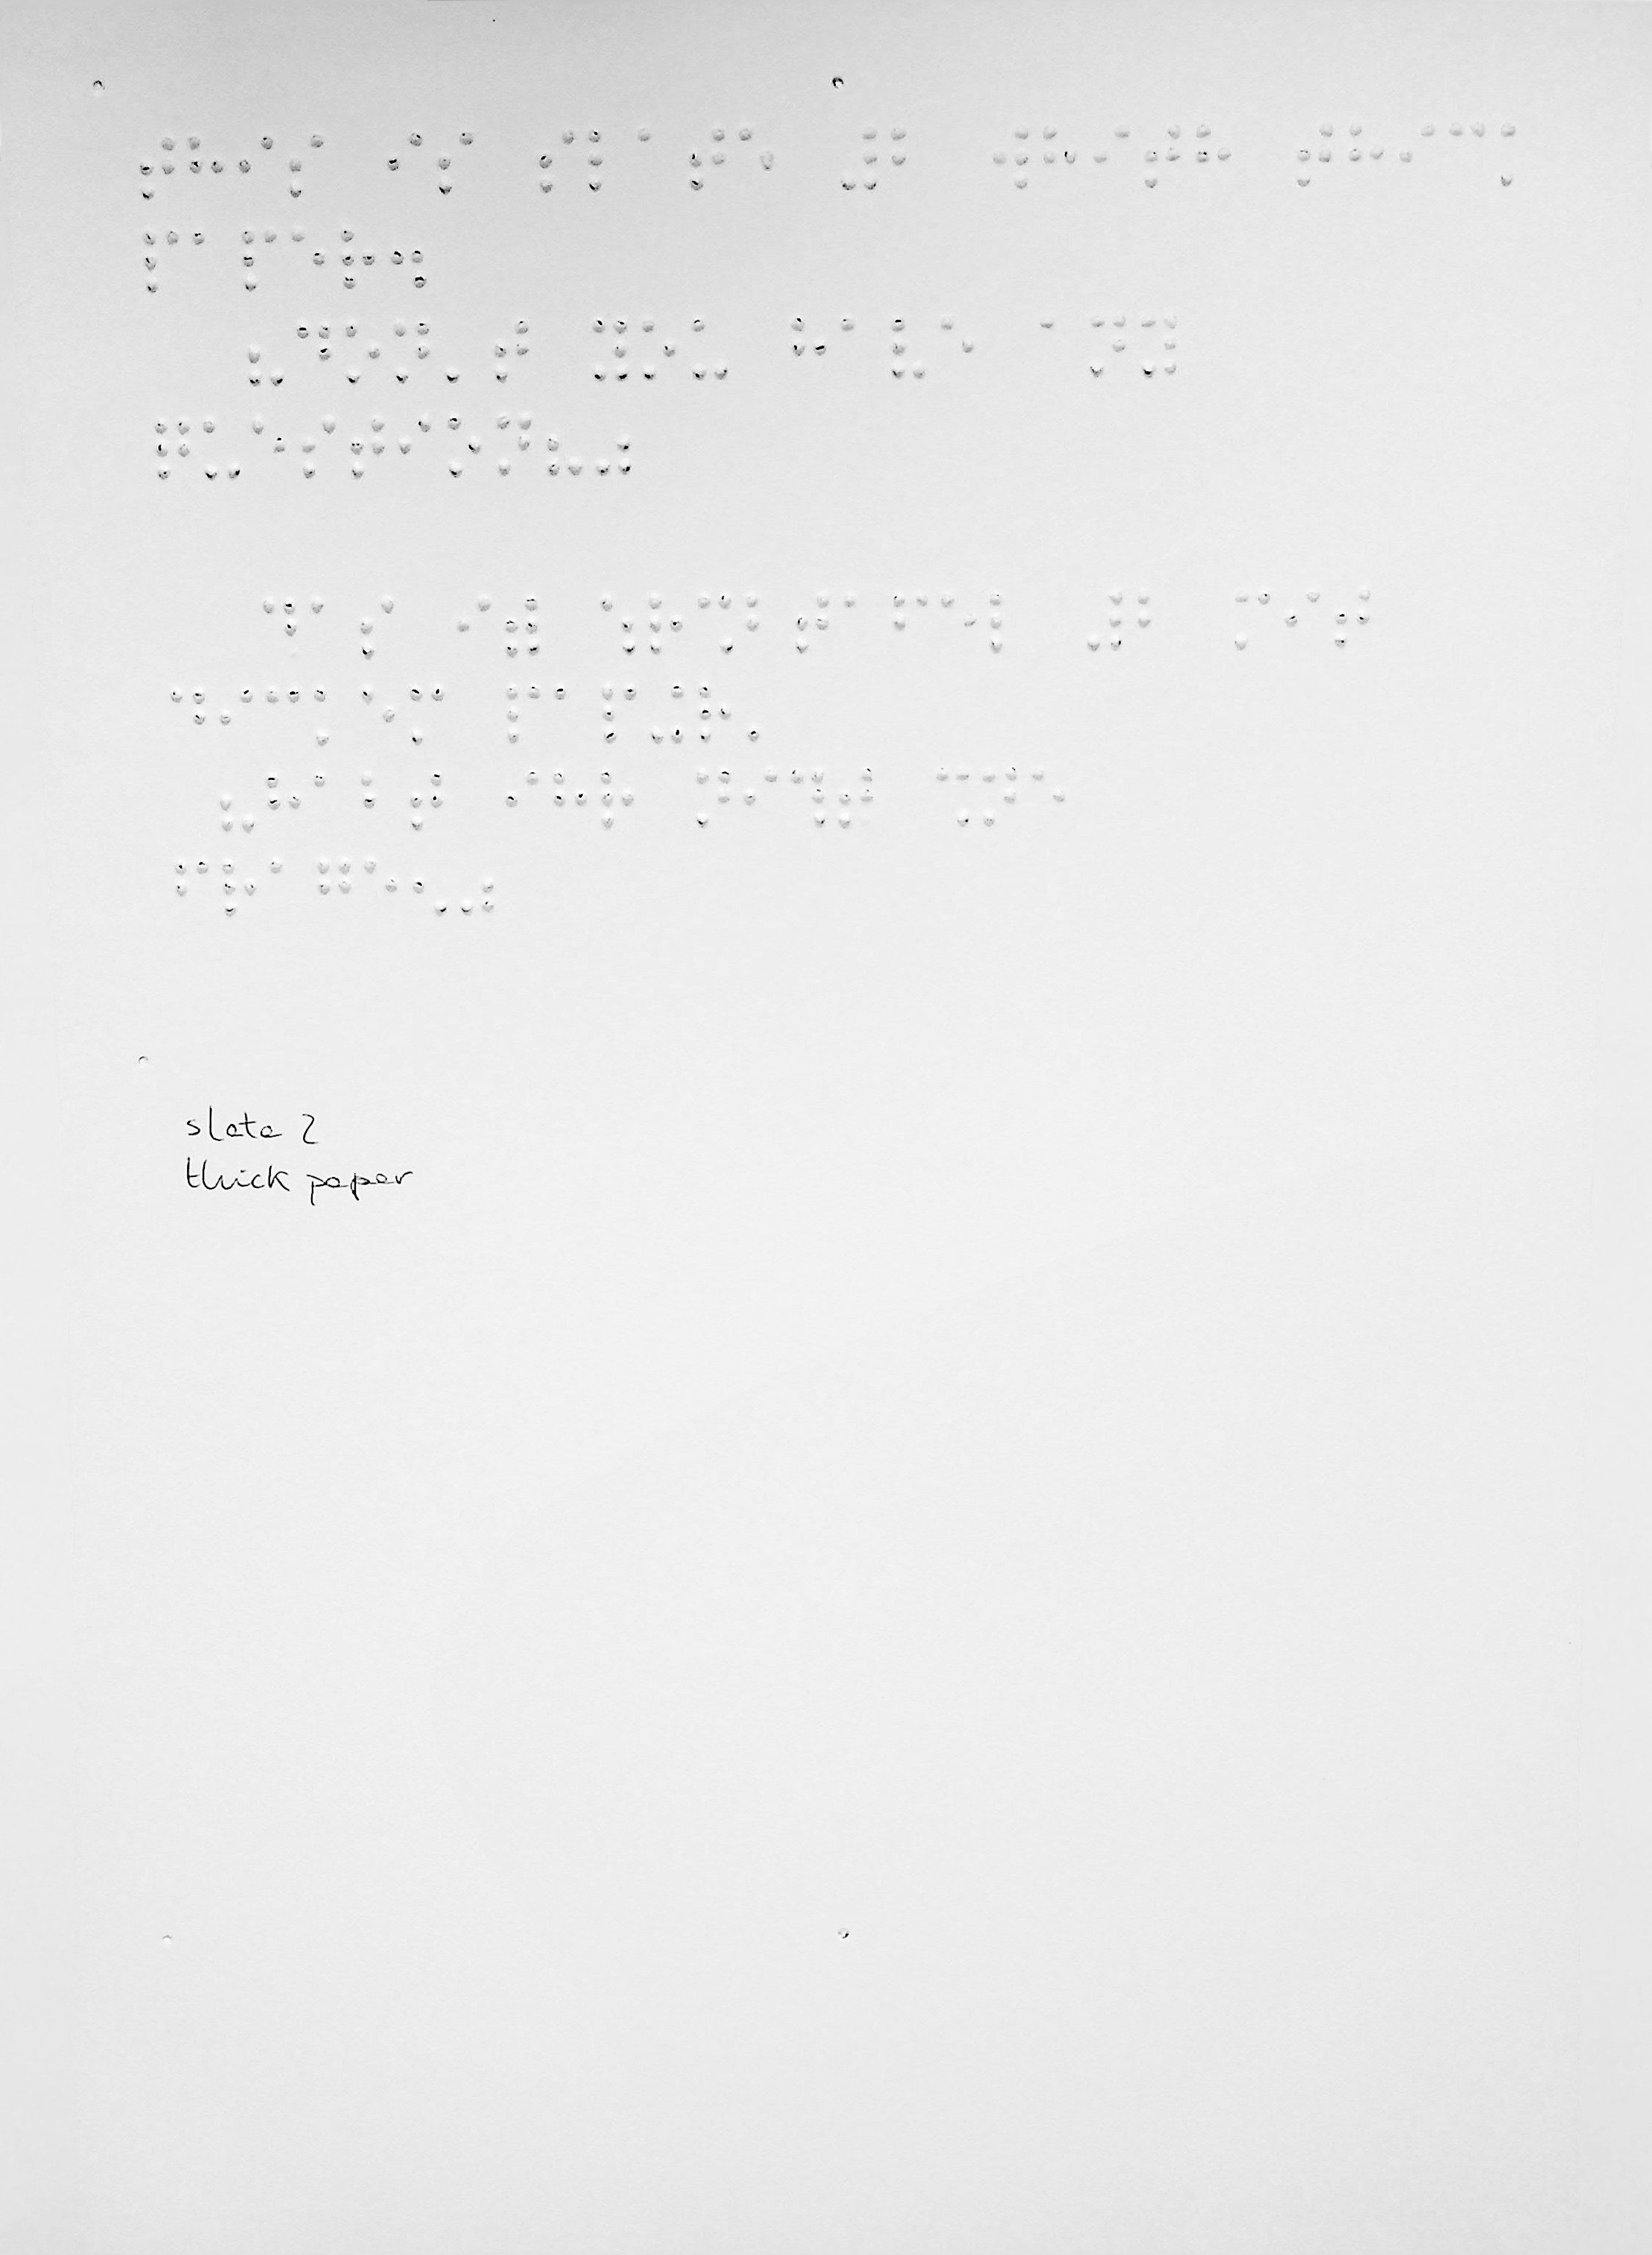 ⠞⠓⠊⠎ ⠊⠎ ⠎⠇⠁⠞⠑ ⠼⠃ ⠺⠓⠊⠞⠓ ⠞⠓⠊⠉⠅
⠏⠁⠏⠑⠗⠲
⠦⠙⠕⠝⠄⠞ ⠽⠕⠥ ⠓⠁⠧⠑ ⠁⠝⠽
⠟⠥⠑⠎⠞⠊⠕⠝⠦⠴
⠙⠁⠎ ⠊⠾ ⠱⠗⠩⠃⠞⠁⠋⠑⠇ ⠼⠃ ⠍⠊⠞
⠙⠊⠉⠅⠑⠍ ⠏⠁⠏⠬⠗⠄
⠦⠓⠁⠃⠞ ⠊⠓⠗ ⠝⠊⠹⠞ ⠩⠝⠑
⠋⠗⠁⠛⠑⠢⠴
slate 2
thick paper